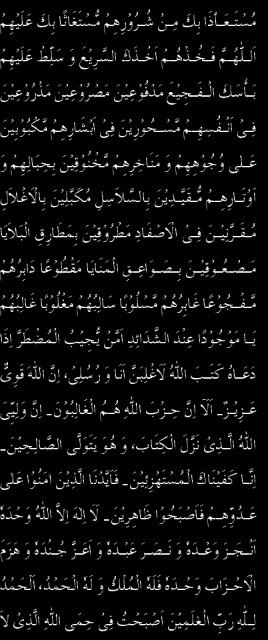 مُسْتَعَاذًا بِكَ مِنْ شُرُوْرِهِمْ مُّسْتَغَاثًا بِكَ عَلَيْهِمْ
اَللّٰهُمَّ فَخُذْهُمْ اَخْذَكَ السَّرِيْعَ وَ سَلِّطْ عَلَيْهِمْ
بَأْسَكَ الْفَجِيْعَ مَدْفُوْعِيْنَ مَصْرُوْعِيْنَ مَذْرُوْعِيْنَ
فِىْ اَنْفُسِهِمْ مَّسْحُوْرِيْنَ فِىْ اَبْشَارِهِمْ مَّكْبُوْبِيْنَ
عَلٰى وُجُوْهِهِمْ وَ مَنَاخِرِهِمْ مَخْنُوْقِيْنَ بِحِبَالِهِمْ وَ
اَوْتَارِهِمْ مُّقَيَّدِيْنَ بِالسَّلَاسِلِ مُكَبَّلِيْنَ بِالْاَغْلَالِ
مُقَرَّنِيْنَ فِى الْاَصْفَادِ مَطْرُوْقِيْنَ بِمَطَارِقِ الْبَلَايَا
مَصْعُوْقِيْنَ بِصَوَاعِقِ الْمَنَايَا مَقْطُوْعًا دَابِرُهُمْ
مَّفْجُوْعًا غَابِرُهُمْ مَّسْلُوْبًا سَالِبُهُمْ مَغْلُوْبًا غَالِبُهُمْ
يَا مَوْجُوْدًا عِنْدَ الشَّدَائِدِ اَمَّنْ يُّجِيْبُ الْمُضْطَرَّ اِذَا
دَعَاهُ كَتَبَ اللّٰهُ لَاَغْلِبَنَّ اَنَا وَ رُسُلِىْ، اِنَّ اللّٰهَ قَوِىٌّ
عَزِيْزٌ۔ اَلَآ اِنَّ حِزْبَ اللّٰهِ هُمُ الْغَالِبُوْنَ۔ اِنَّ وَلِيِّىَ
اللّٰهُ الَّذِىْ نَزَّلَ الْكِتَابَ، وَ هُوَ يَتَوَلَّى الصَّالِحِيْنَ۔
اِنَّا كَفَيْنَاكَ الْمُسْتَهْزِئِيْنَ۔ فَاَيَّدْنَا الَّذِيْنَ اٰمَنُوْا عَلٰى
عَدُوِّهِمْ فَاَصْبَحُوْا ظَاهِرِيْنَ۔ لَا اِلٰهَ اِلاَّ اللّٰهُ وَحْدَهُ
اَنْجَزَ وَعْدَهُ وَ نَصَرَ عَبْدَهُ وَ اَعَزَّ جُنْدَهُ وَ هَزَمَ
الْاَحْزَابَ وَحْدَهُ فَلَهُ الْمُلْكُ وَ لَهُ الْحَمْدُ، اَلْحَمْدُ
لِلّٰهِ رَبِّ الْعٰلَمِيْنَ اَصْبَحْتُ فِىْ حِمَى اللّٰهِ الَّذِىْ لاَ